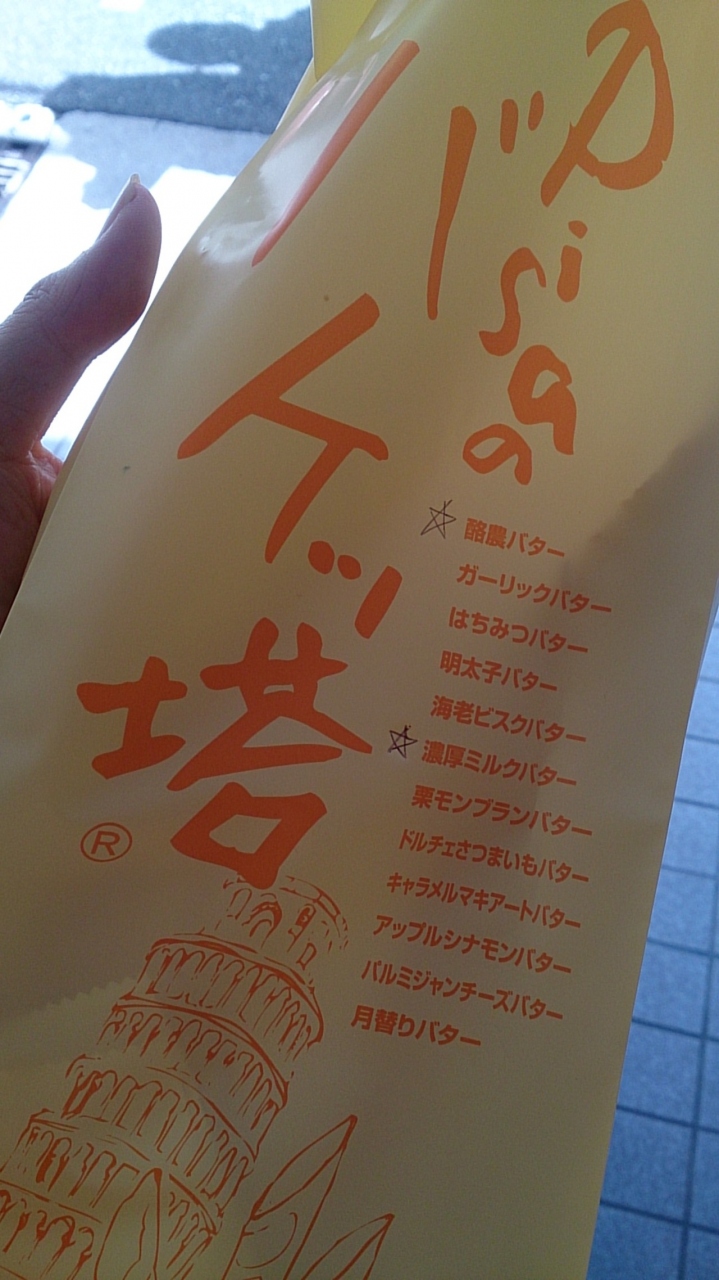 Pisaの
バーケット塔
®
酪農バター
ガーリックバター
はちみつバター
明太子バター
海老ビスクバター
濃厚ミルクバター
栗モンブランバター
ドルチェさつまいもバター
キャラメルマキアートバター
アップルシナモンバター
パルミジャンチーズバター
月替りバター